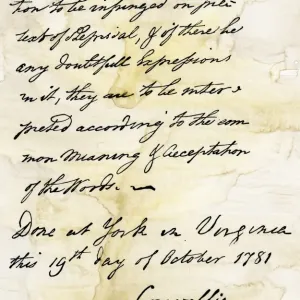 tion to be infringed on pre-
text of Reprisal, & if there be
any doubtfull Expressions
in it, they are to be inter-
preted according to the com
mon Meaning & Acceptation
of the Words.
Done at York in Virginia
this 19th day of October 1781
Cornwallis